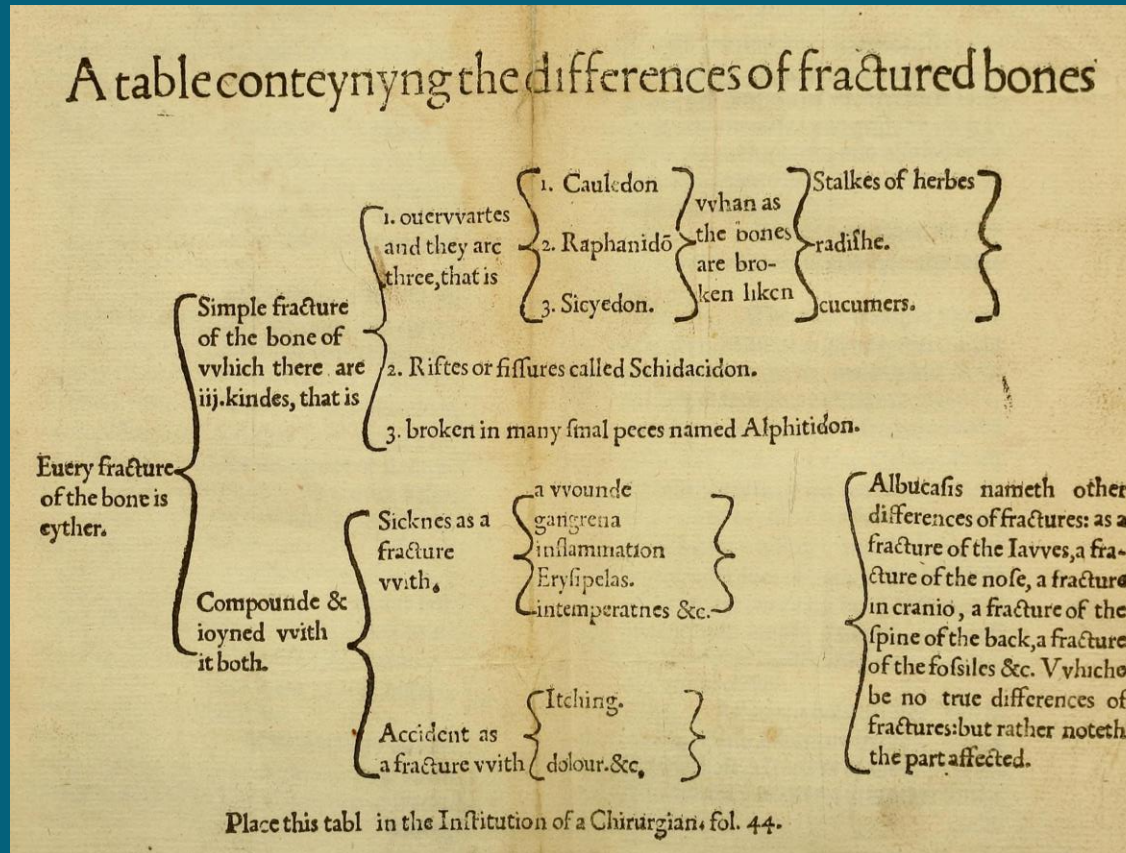 A table conteynyng the differences of fractured bones
Euery fracture
of the bone is
eyther.
Simple fracture
of the bone of
vvhich there are
iij.kindes, that is
1. ouervvartes
and they are
three, that is
1. Cauledon
2. Raphanidō
3. Sicyedon.
vvhan as
the bones
are bro-
ken liken
Stalkes of herbes
radiſhe.
cucumers.
2. Riftes or fiſſures called Schidacidon.
3. broken in many ſmal peces named Alphitidon.
Compounde &
ioyned vvith
it both.
Sicknes as a
fracture
vvith.
a vvounde
gangrena
inflammation
Eryſipelas.
intemperatnes &c.
Accident as
a fracture vvith
Itching.
dolour.&c.
Albucaſis nameth other
differences of fractures: as a
fracture of the Iavves, a fra-
cture of the noſe, a fracture
in cranio, a fracture of the
ſpine of the back, a fracture
of the foſsiles &c. Vvhiche
be no true differences of
fractures: but rather noteth
the part affected.
Place this tabl in the Inſtitution of a Chirurgian. fol. 44.